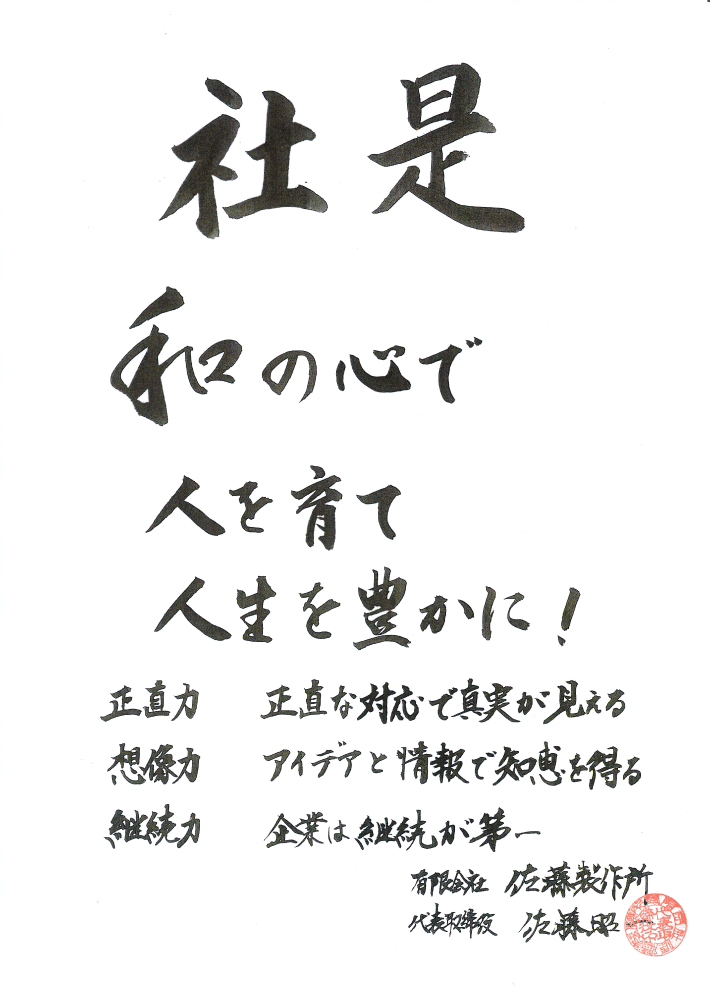 社是
和の心で
人を育て
人生を豊かに！
正直力 正直な対応で真実が見える
想像力 アイデアと情報で知恵を得る
継続力 企業は継続が第一
有限会社 佐藤製作所
代表取締役 佐藤昭